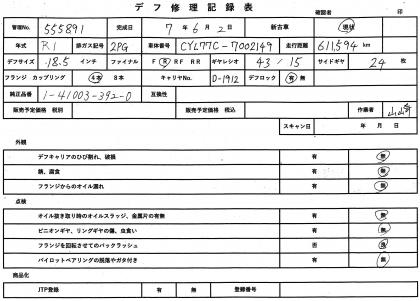 デフ修理記録表
確認者 印
管理No. 555891 完成日 7 年 6 月 2 日 新古車 現状
年式 R1 排ガス記号 2PG 車体番号 CYL77C-7002149 走行距離 611,594 km
デフサイズ 18.5 インチ ファイナル F R RF RR ギヤレシオ 43/15 サイドギヤ 24 枚
フランジ カップリング 4本 8本 キャリヤNo. D-1912 デフロック 有 無
純正品番 1-41003-392-0 互換性
販売予定価格 税別 販売予定価格 税込 作業者 山崎
スキャン日 年 月 日
外観
デフキャリアのひび割れ、破損 有 無
錆、腐食 有 無
フランジからのオイル漏れ 有 無
点検
オイル抜き取り時のオイルスラッジ、金属片の有無 有 無
ピニオンギヤ、リングギヤの傷、虫食い 有 無
フランジを回転させてのバックラッシュ 否 良
パイロットベアリングの脱落やガタ付き 有 無
商品化
JTP登録 有 無 登録番号